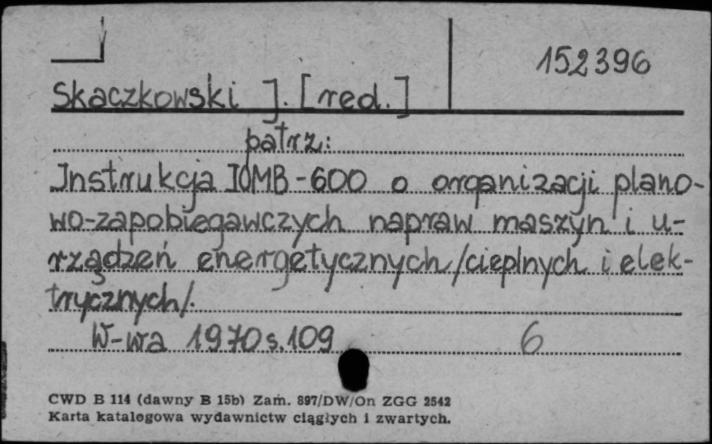 152396
Skaczkowski J. [red.]
patrz:
Instrukcja IOMB-600 o organizacji plano-
wo-zapobiegawczych napraw maszyn i u-
rządzeń energetycznych/cieplnych i elek-
trycznych/.
W-wa 1970 s. 109 6
CWD B 114 (dawny B 15b) Zam. 897/DW/On ZGG 2542
Karta katalogowa wydawnictw ciągłych i zwartych.